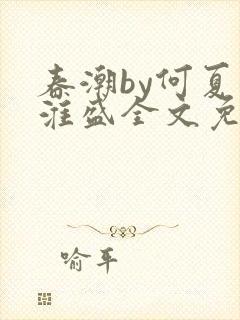 春潮by何夏
淮盛全文免
喻平